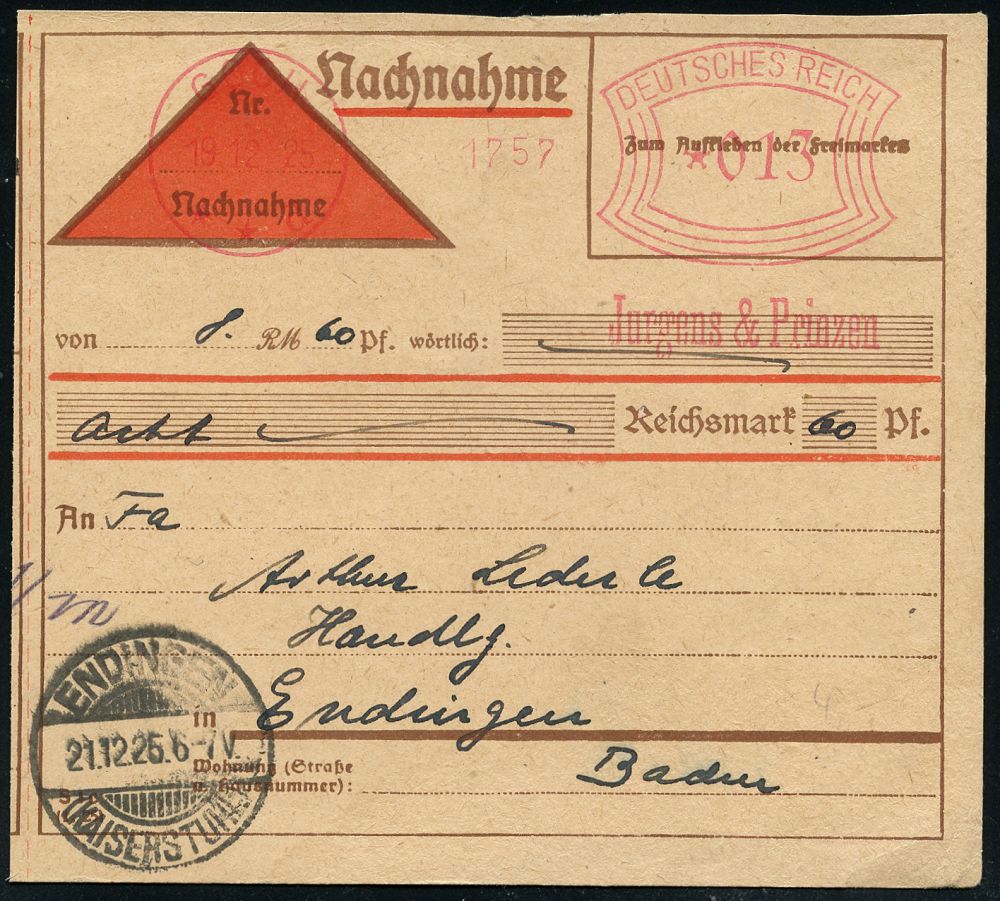 Nachnahme
DEUTSCHES REICH
Nr.
19.12.25.
1757
Zum Aufkleben der Freimarken
*013
Nachnahme
Jurgens & Prinzen
von 8. RM 60 Pf. wörtlich:
Acht Reichsmark 60 Pf.
An Fa
Arthur Lederle
Handlg.
ENDINGEN
in Endingen
21.12.25.6-7V.
Wohnung (Straße
u. Hausnummer):
Baden
(KAISERSTUHL)